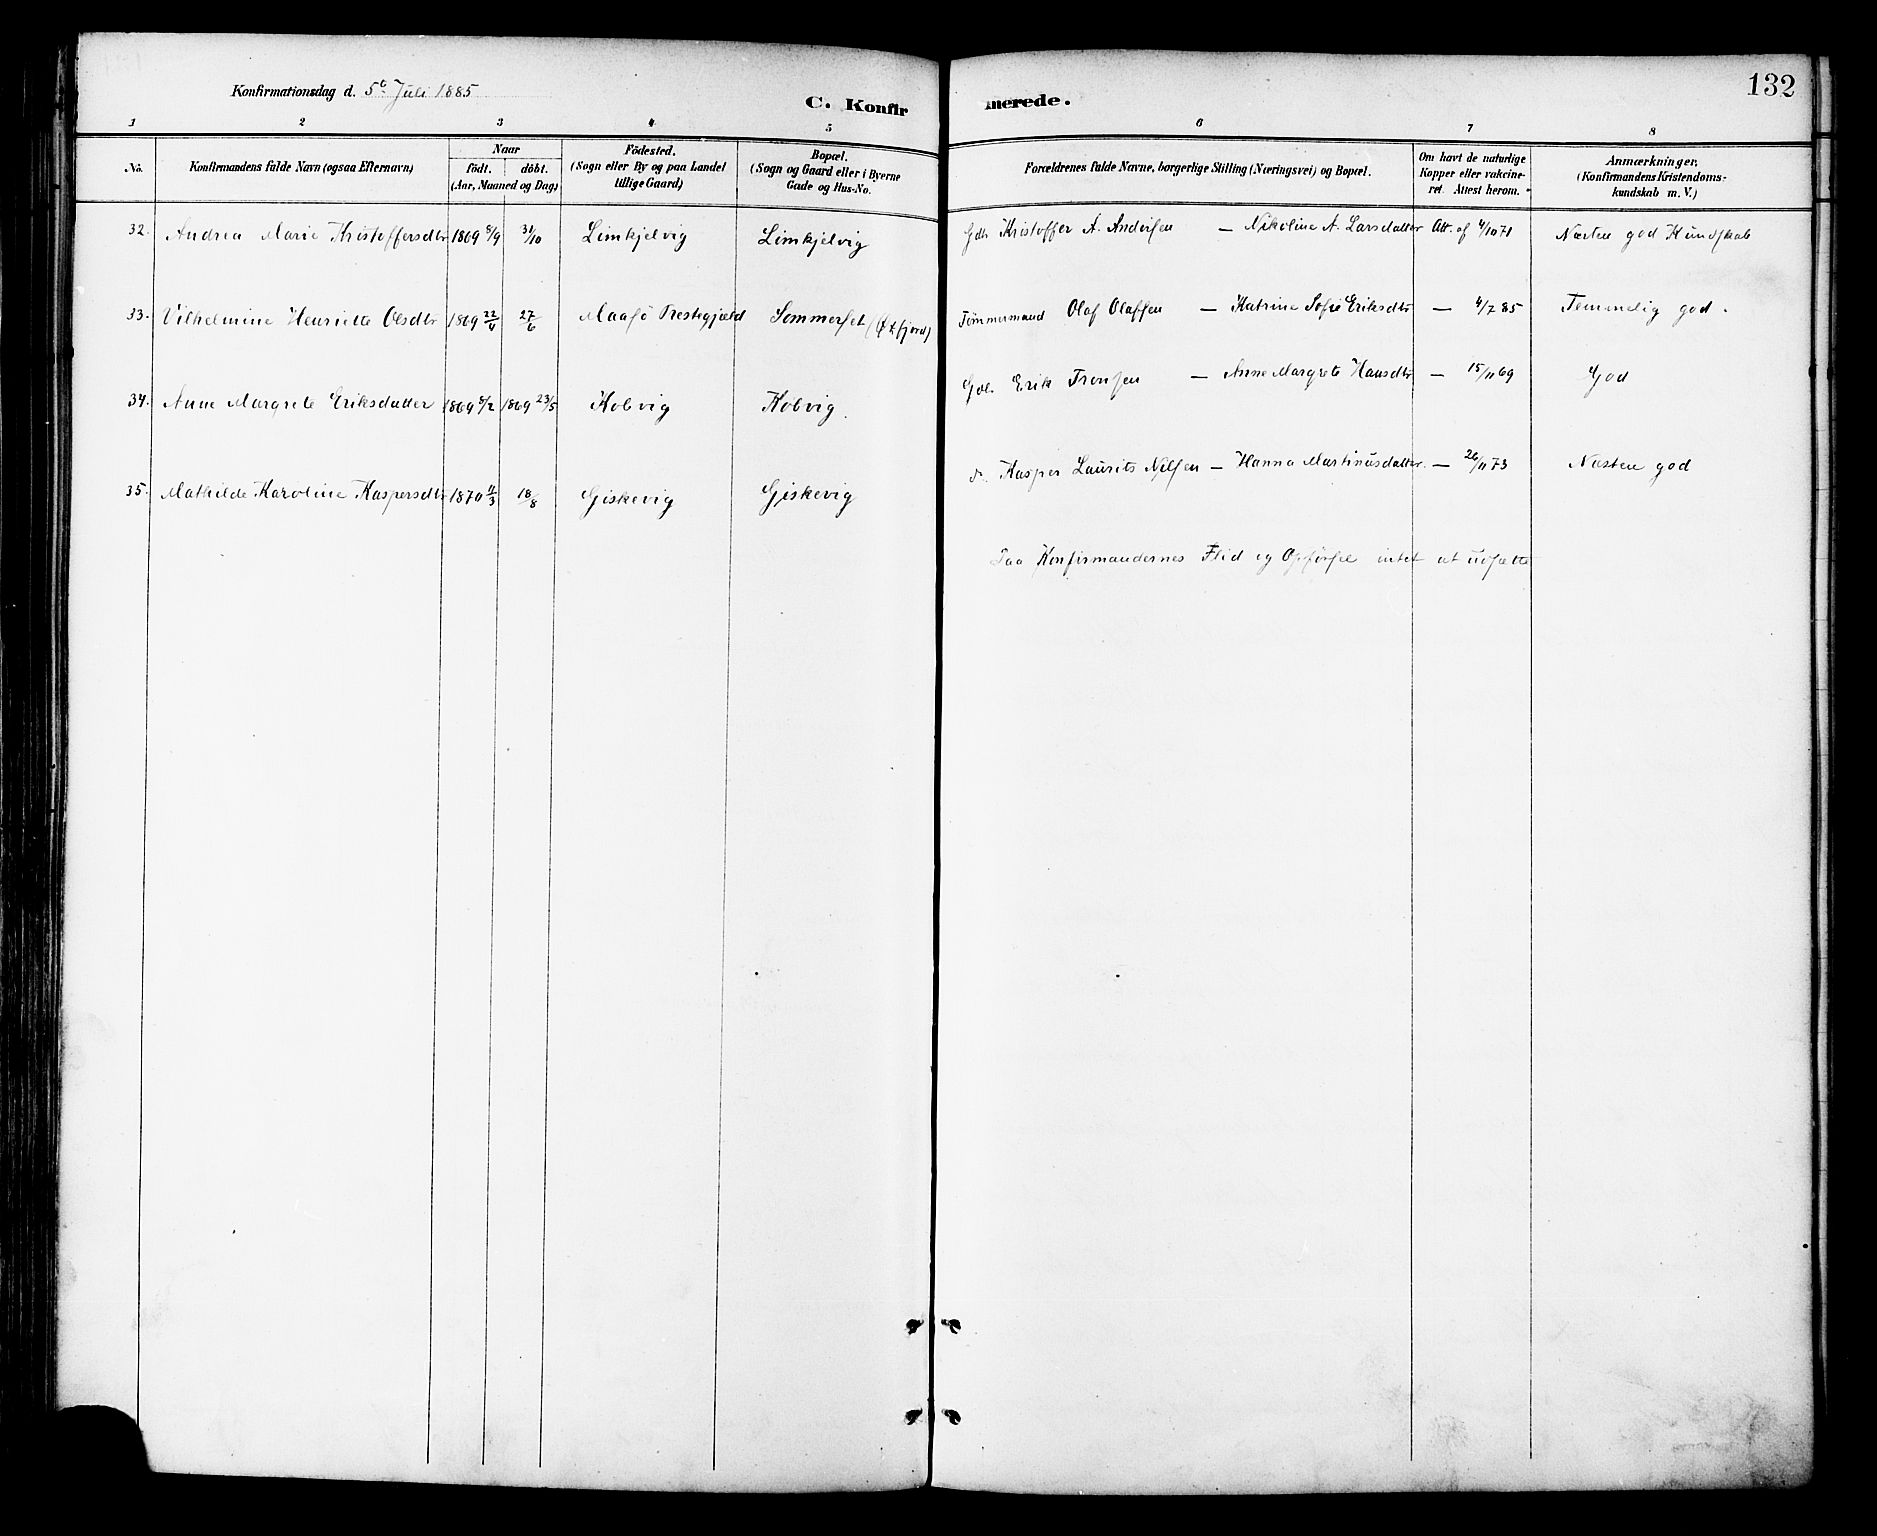 132
Konfirmationsdag d. 5t Juli 1885
C. Konfirmerede.
1 2 3 4 5 6 7 8
No. Konfirmandens fulde Navn (ogsaa Efternavn) Naar födt. döbt. (Aar, Maaned og Dag) Födested. (Sogn eller By og paa Landet tillige Gaard) Bopæl. (Sogn og Gaard eller i Byerne Gade og Hus-No. Forældrenes fulde Navne, borgerlige Stilling (Næringsvei) og Bopæl. Om havt de naturlige Kopper eller vakcineret. Attest herom. Anmærkninger. (Konfirmandens Kristendomskundskab m. V.)
32. Andrea Marie Kristoffersdtr 1869 8/9 31/10 Limkjelvig Limkjelvig Gdr Kristoffer A. Andersen — Nikoline A. Larsdatter Att. af 4/10 71 Næsten god Kundskab
33. Vilhelmine Henriette Olsdtr 1869 22/4 27/6 Maasö Prestegjæld Sommerset (Øxfjord) Tømmermand Olaf Olaffen — Katrine Sofie Eriksdtr — 4/7 85 Temmelig god.
34. Anne Margrete Eriksdatter 1869 8/2 1869 23/5 Kobvig Kobvig. Gdr. Erik Tronsen — Anne Margrete Hansdtr — 15/11 69 God
35. Mathilde Karoline Kaspersdtr 1870 11/3 18/8 Giskevig Giskevig do. Kasper Laurits Nilsen — Hanna Martinusdatter. — 26/11 73 Næsten god
Paa Konfirmandernes Flid og Opførsel intet at udsætte